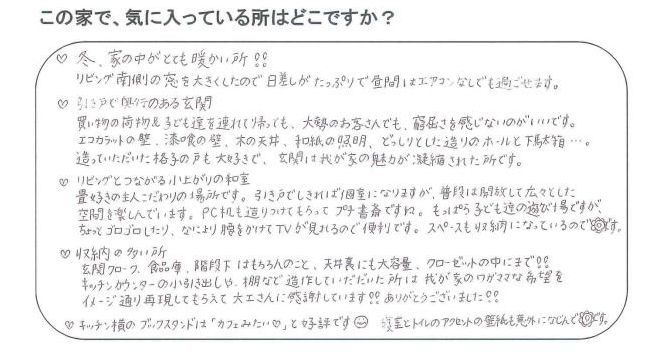 この家で、気に入っている所はどこですか？
♡ 冬、家の中がとても暖かい所!!
リビング南側の窓を大きくしたので日差しがたっぷりで昼間はエアコンなしでも過ごせます。
♡ 引き戸で奥行のある玄関
買い物の荷物&子ども達を連れて帰っても、大勢のお客さんでも、窮屈さを感じないのがいいです。
エコカラットの壁、漆喰の壁、木の天井、和紙の照明、どっしりとした造りのホールと下駄箱…。
造っていただいた格子の戸も大好きで、玄関は我が家の魅力が凝縮された所です。
♡ リビングとつながる小上がりの和室
畳好きの主人こだわりの場所です。引き戸でしきれば個室になりますが、普段は開放して広々とした
空間を楽しんでいます。PC机も造りつけてもらってプチ書斎ですね。もっぱら子ども達の遊び場ですが、
ちょっとゴロゴロしたり、なにより腰をかけてTVが見れるので便利です。スペースも収納になっているので◎です。
♡ 収納の多い所
玄関クローク、食品庫、階段下はもちろんのこと、天井裏にも大容量、クローゼットの中にまで!!
キッチンカウンターの小引き出しや、棚など造作していただいた所は我が家のワガママな希望を
イメージ通り再現してもらえて大工さんに感謝しています!!ありがとうございました!!
♡ キッチン横のブックスタンドは「カフェみたい♡」と好評です☺ 寝室とトイレのアクセントの壁紙も意外になじんで◎です。